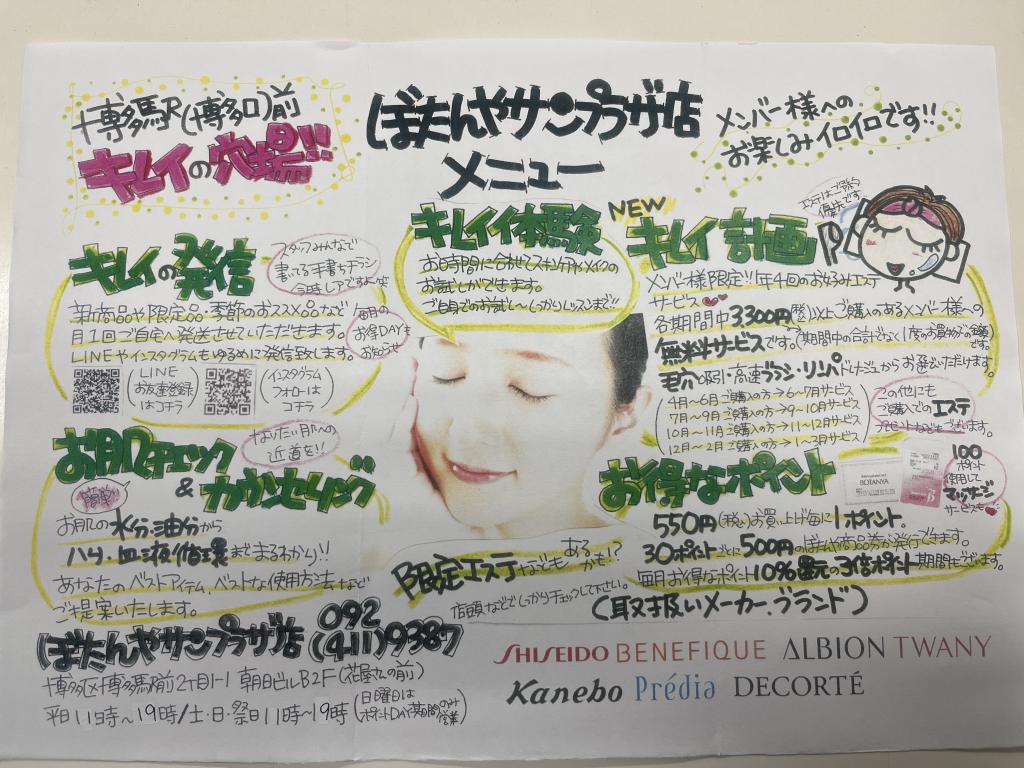 博多駅(博多口)前
キレイの穴場!!
ぼたんやサンプラザ店
メニュー
メンバー様への
お楽しみイロイロです!!
キレイの発信
スタッフみんなで
書いてる手書きチラシ
今時レアですよ〜笑
新商品や限定品・季節のおススメ品など
月1回ご自宅へ発送させていただきます。
LINEやインスタグラムもゆるめに発信致します。
毎月の
お得DAYも
お知らせ
(LINE
お友達登録
はコチラ)
(インスタグラム
フォローは
コチラ)
キレイイ体験
お時間に合わせてスキンケアやメイクの
お試しができます。
ご自身でのお試し〜しっかりレッスンまで!!
NEW
キレイ計画
エステはご予約
優先です
メンバー様限定!!年4回のお好みエステ
サービス
各期間中3,300円(税込)以上ご購入あるメンバー様への
無料サービスです。(期間中の合計でなく1度のお買物分の金額
です。)
毛穴吸引・高速ブラシ・リンパドレナージュからお選びいただけます。
4月〜6月ご購入の方→6〜7月サービス
7月〜9月ご購入の方→9〜10月サービス
10月〜11月ご購入の方→11〜12月サービス
12月〜2月ご購入の方→2〜3月サービス
この他にも
ご購入でのエステ
プレゼントなどもございます。
お肌チェック
&カウンセリング
なりたい肌への
近道を!!
簡単!!
お肌の水分・油分から
ハリ・血液循環までまるわかり!!
あなたのベストアイテム、ベストな使用方法など
ご提案いたします。
お得なポイント
BOTANYA
100
ポイント
使用して
マッサージ
サービスも
550円(税込)お買い上げ毎に1ポイント。
30ポイントごとに500円のぼたんや商品券が発行できます。
毎月お得なポイント10%還元の3倍ポイント期間もございます。
限定エステなども あるかも!?
店頭などでしっかりチェックして下さい。
(取り扱いメーカー、ブランド)
SHISEIDO BENEFIQUE ALBION TWANY
Kanebo Prédia DECORTÉ
ぼたんやサンプラザ店 092(411)9387
博多区博多駅前2丁目1-1 朝日ビルB2F(花屋さんの前)
平日11時〜19時/土・日・祭日11時〜19時(日曜日は
ポイントDAY期間のみ
営業)